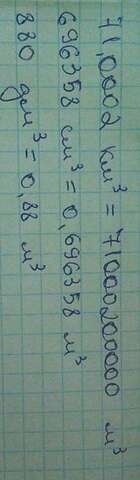 71,0002 км³ = 71000200000 м³
696358 см³ = 0,696358 м³
880 дм³ = 0,88 м³